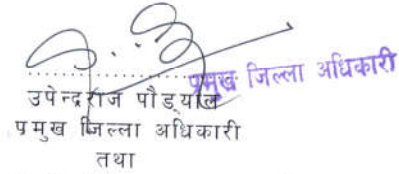 प्रमुख जिल्ला अधिकारी
उपेन्द्रराज पौड्याल
प्रमुख जिल्ला अधिकारी
तथा